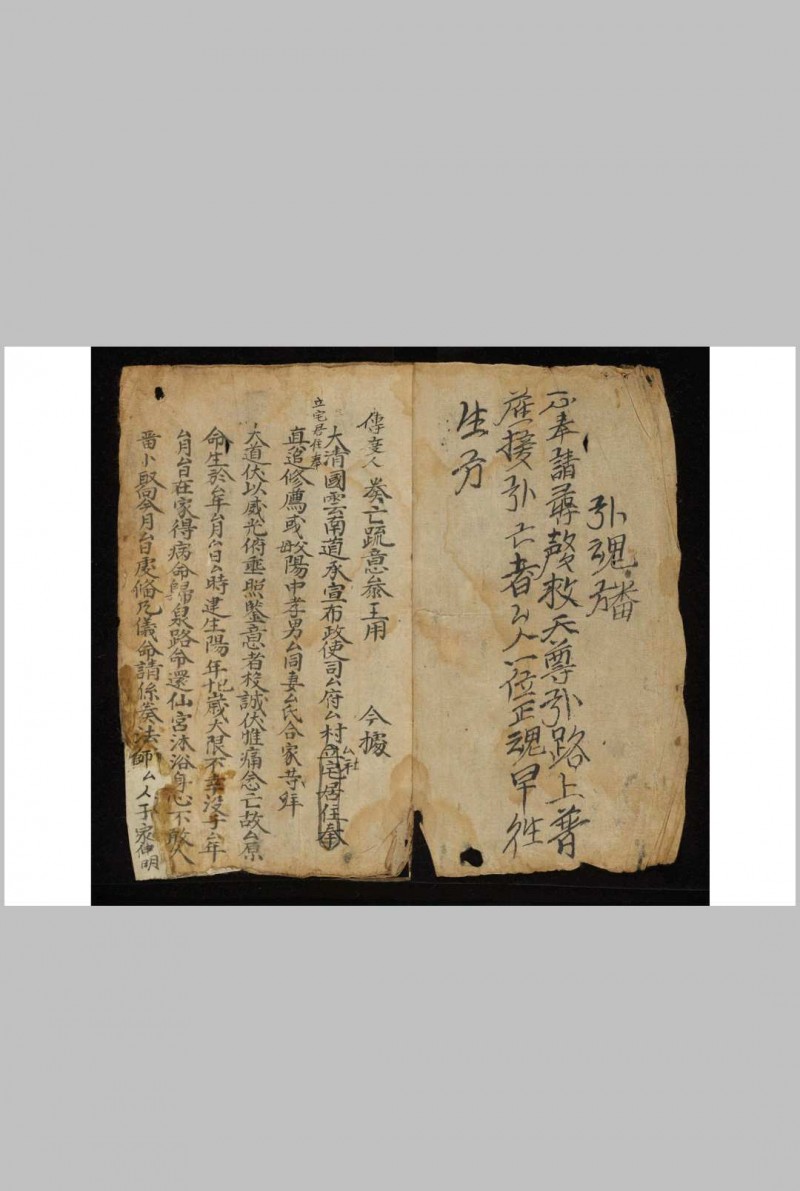 引魂旛
不奉請尋聲救天尊引路上普
接引亡者厶人一位正魂早徃
生方
傳度人 奏亡疏意叅王用 今據
大清國雲南道承宣布政使司厶府厶村厶社立宅居住奉
立宅居住奉
真追修薦或歿陽中孝男厶同妻厶氏合家等拜
大道伏以威光俯垂照鑒意者投誠伏惟痛念亡故厶原
命生於厶年厶月厶日厶時建生陽年歲大限不幸沒于厶年
厶月厶日在家得病命歸泉路命還仙宮沐浴身心不敢入
今月厶日處修凡儀命請係奏法師厶人于家仲明